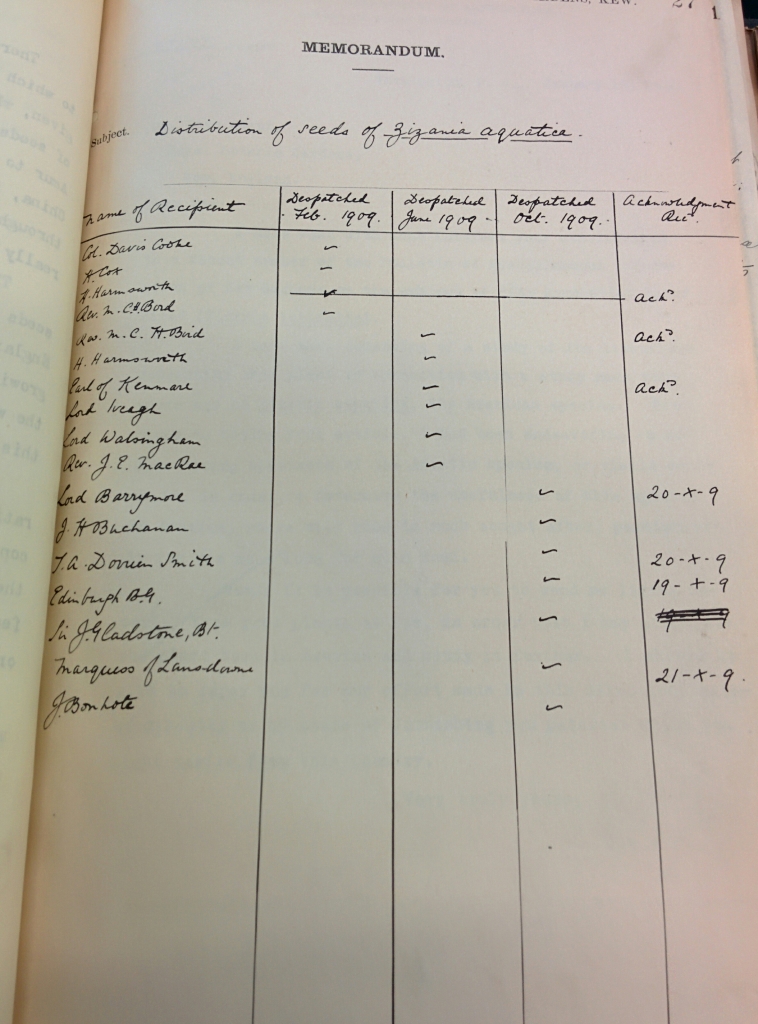 KEW. 27 1
MEMORANDUM.
Subject. Distribution of seeds of Zizania aquatica.
Name of Recipient Despatched Feb. 1909. Despatched June 1909 Despatched Oct. 1909. Acknowledgment Rec.
Col. Davis Cooke ✓
H. Cox ✓
H. Harmsworth ✓
Rev. M. C. H. Bird ✓ Ack?.
Rev. M. C. H. Bird ✓ Ack?.
H. Harmsworth ✓
Earl of Kenmare ✓ Ack?.
Lord Iveagh ✓
Lord Walsingham ✓
Rev. J. E. MacRae ✓
Lord Barrymore ✓ 20-X-9
J. H Buchanan ✓
T. A. Dorrien Smith ✓ 20-X-9
Edinburgh B.G. ✓ 19-X-9
Sir J. Gladstone, Bt. ✓
Marquess of Lansdowne ✓ 21-X-9.
J. Bonhote ✓